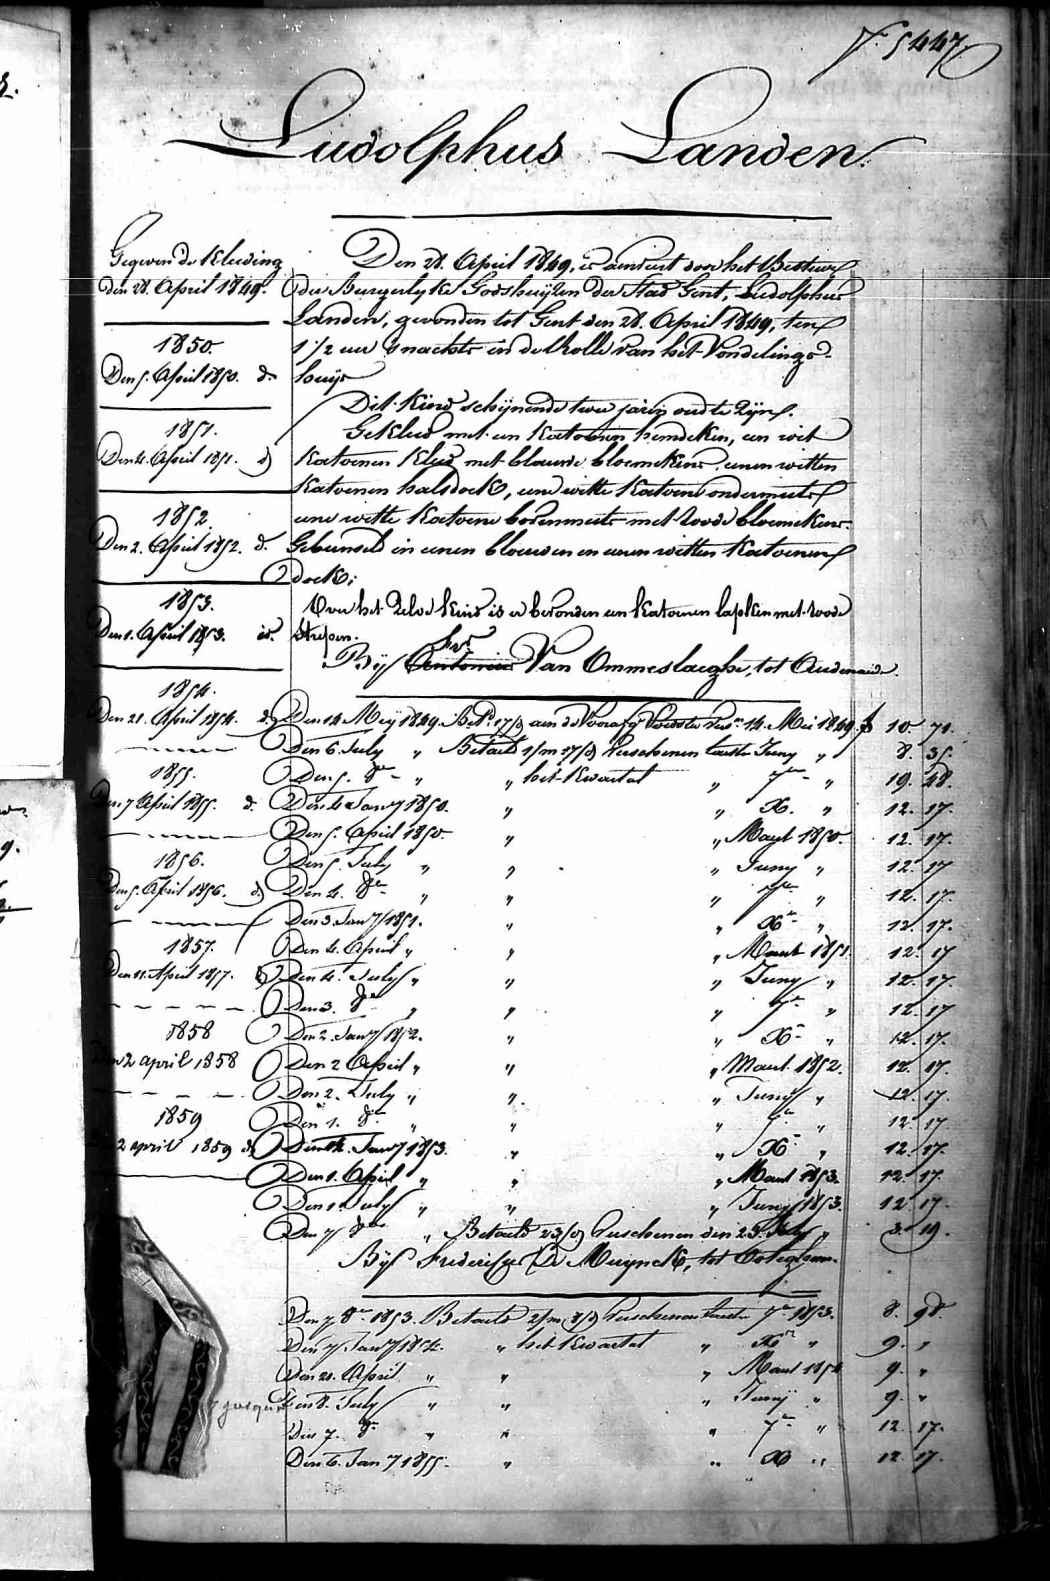 5447.
Ludolphus Landen.
Gegeven de Kleeding
den 28. April 1849.
1850.
Den 5. April 1850. d.
1851.
Den 4. April 1851. d.
1852.
Den 2. April 1852. d.
1853.
Den 1. April 1853. id.
1854.
Den 21. April 1854. d.
1855.
Den 7 April 1855. d.
1856.
Den 5. April 1856. d.
1857.
Den 11. April 1857. d.
1858
Den 2 april 1858
1859
2 april 1859 d.
Den 28. April 1849, is aenveert door het Bestuer
der Burgerlyke Godshuijzen der Stad Gent, Ludolphus
Landen, gevonden tot Gent den 28. April 1849, ten
1 1/2 uer s'nachts in de Rolle van het Vondelings-
huijs
Dit Kind schijnende twee jaren oud te zijn.
Gekleed met een Katoenen hemdeken, een wit
Katoenen Kleed met blauwe bloemekens, eenen witten
Katoenen halsdoek, eene witte Katoene ondermuts
eene witte Katoene bovenmuts met roode bloemekens
Gebunseld in eenen blauwen en eenen witten Katoenen
doek;
Over het zelve Kind is er bevonden een Katoenen lapken met roode
strepen.
Bij Antonius Van Ommeslaeghe, tot Audenaerde.
Den 14 Meij 1849. Bet. 17/d aen de Voorafg. Voedster 14. Mei 1849. f 10. 71.
Den 6. July " Betaeld 1/m 17/d Verschenen laetste Juny " 8. 35.
Den 5. 8er " " het Kwartael " 7er " 19. 28.
Den 4 Janry 1850. " " X. " 12. 17.
Den 5. April 1850 " " Maert 1850. 12. 17.
Den 5. July " " " Juny " 12. 17
Den 4. 8er " " " 7er " 12. 17.
Den 3. Janry 1851. " " Xr " 12. 17.
Den 4. April " " " Maert 1851 12. 17
Den 4. July " " " Juny " 12. 17.
Den 3. 8er " " " 7er " 12. 17
Den 2. Janry 1852. " " Xr " 12. 17.
Den 2 April " " " Maert 1852. 12. 17.
Den 2. July " " " Juny " 12. 17.
Den 1. 8er " " " 7er " 12. 17
Den Janry 1853. " " Xr " 12. 17.
Den 1. April " " " Maert 1853. 12. 17.
Den 1. July " " " Juny 1853. 12 17.
Den 7 8er " Betaeld 23/d Verschenen den 23. July " 3. 19.
Bij Frederick De Muynck, tot Ooteghem.
Den 7. 8er 1853. Betaeld 2/m 8/d Verschenen laetste 7er 1853. 8. 98.
Den 7 Janry 1854. " het Kwartael " Xr " 9. "
Den 21. April " " " Maert 1854 9. "
Den 8. July " " " Junij " 9. "
Den 7. 8er " " " 7er " 12. 17.
Den 6. Janry 1855. " " X " 12 17.